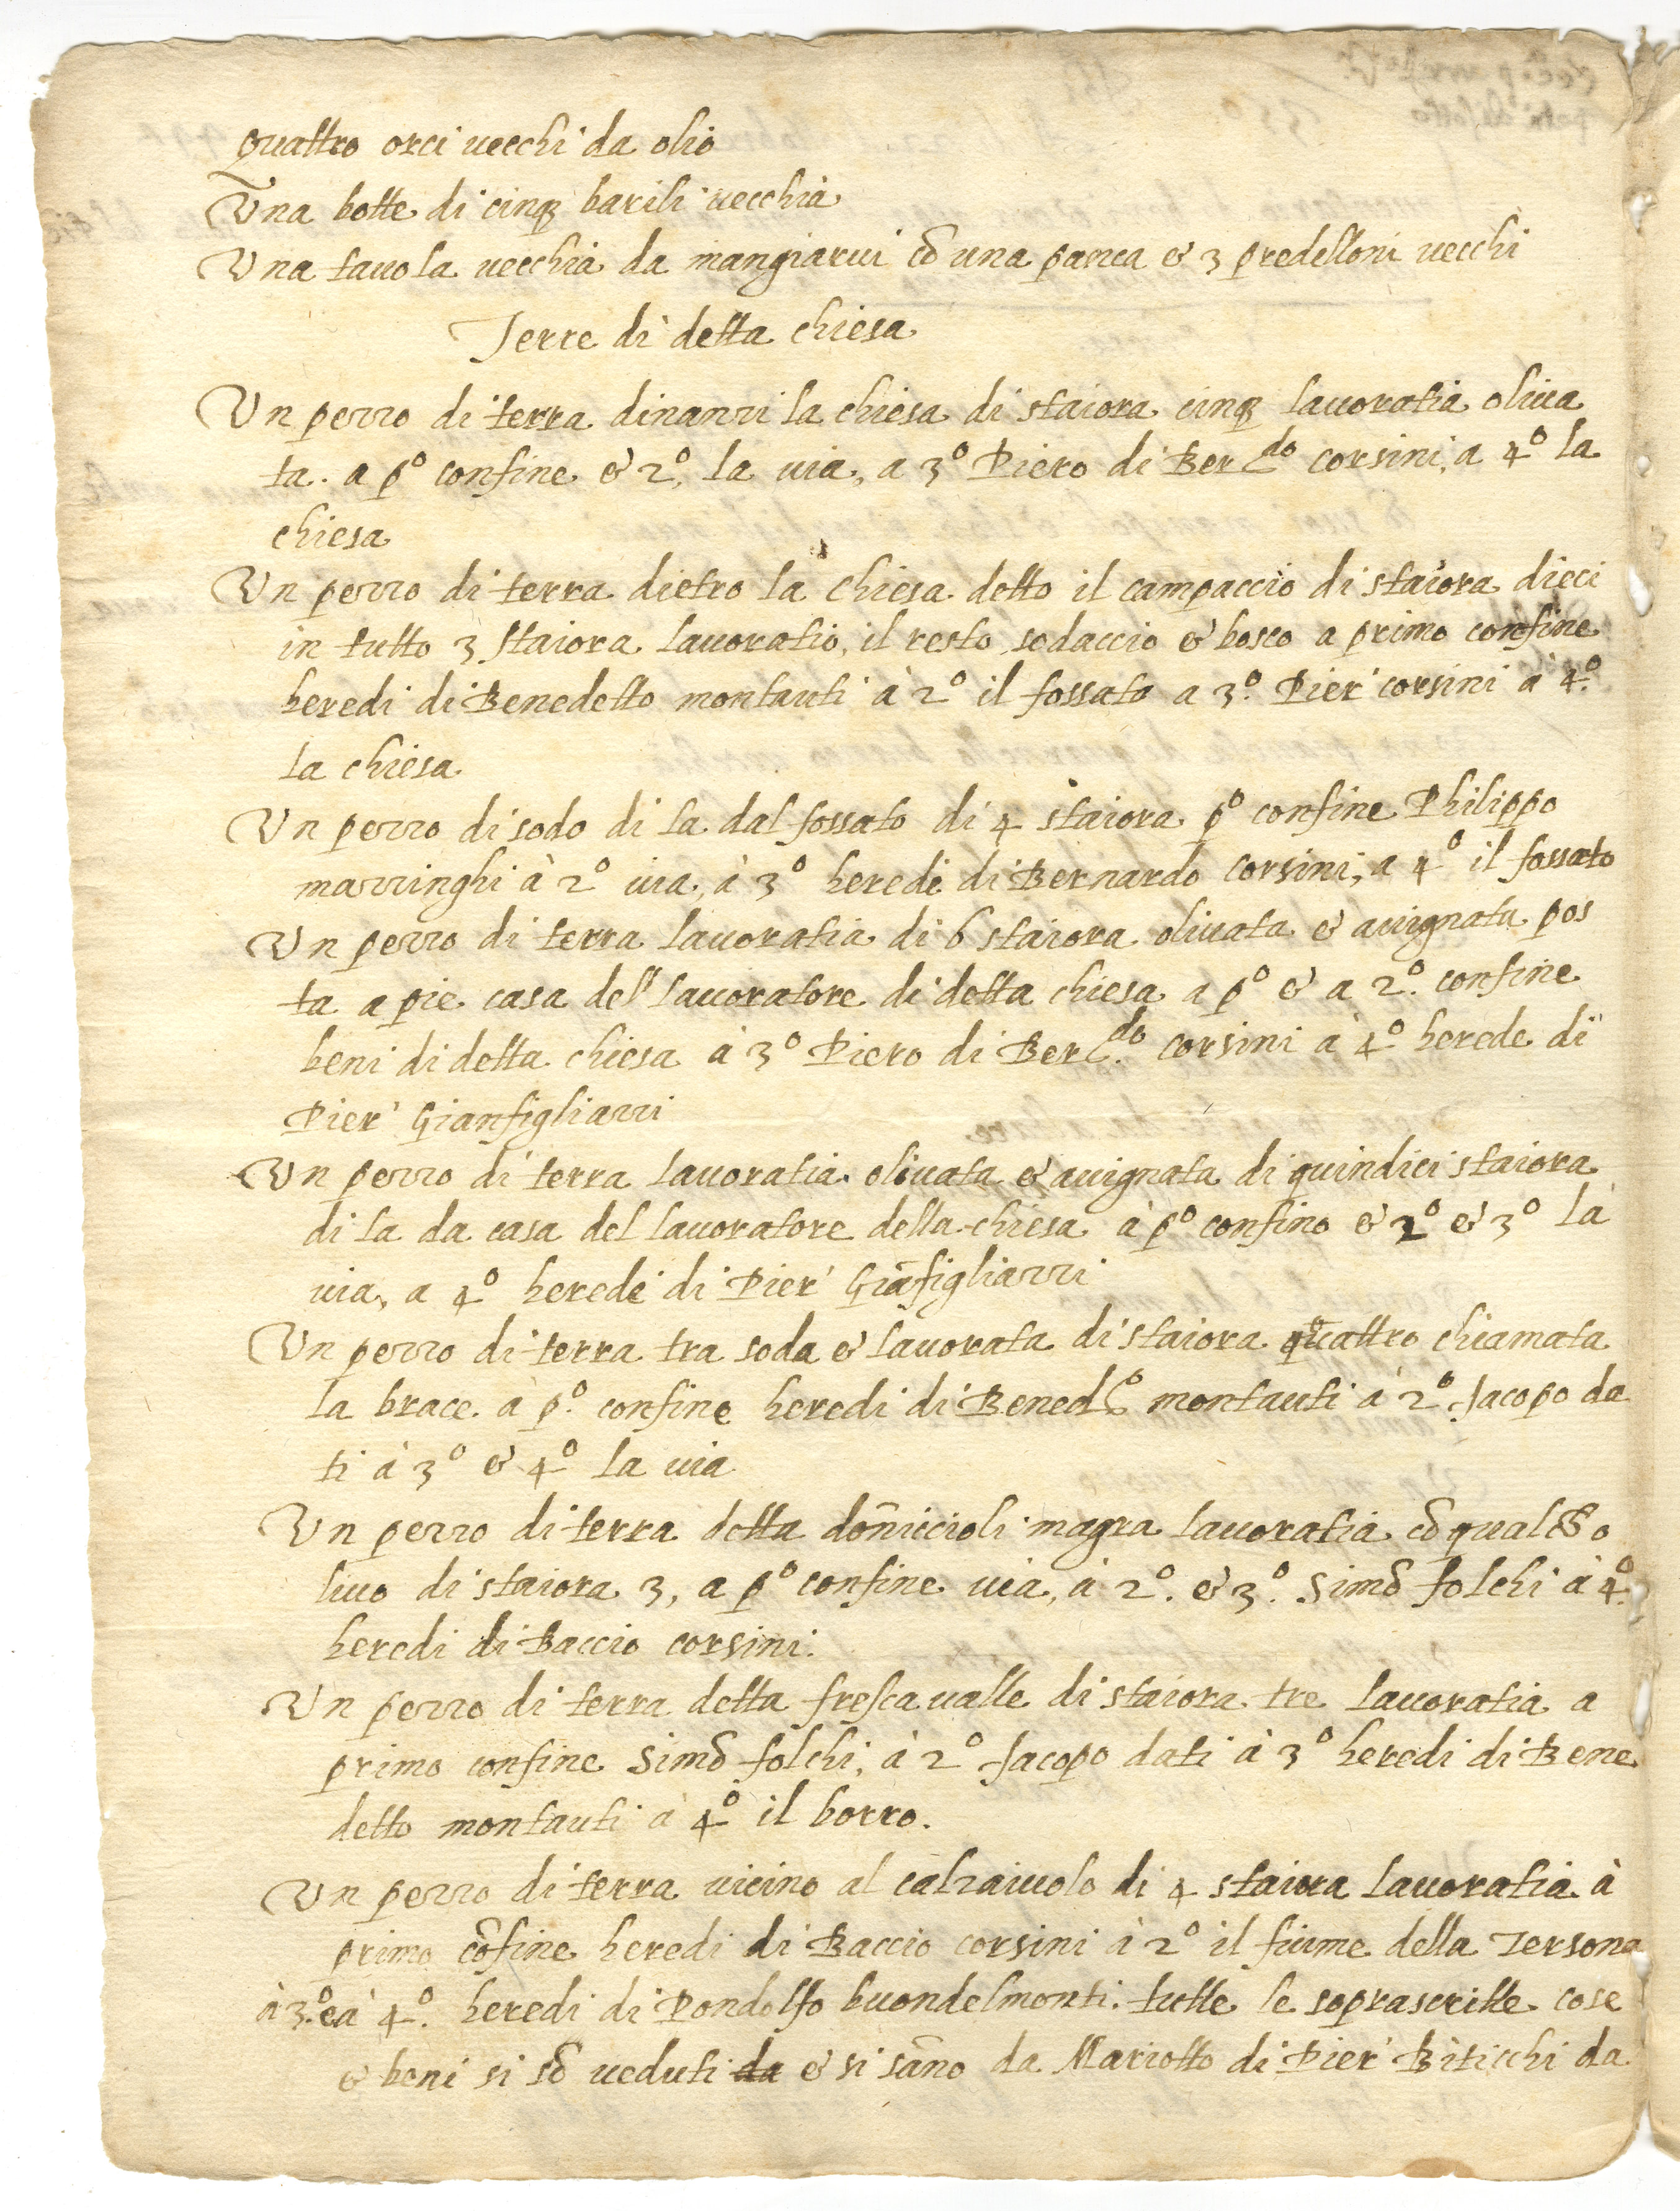 Quattro orci uecchi da olio
Una botte di cinq barili uecchia
Una tauola uecchia da mangiarui cō una panca & 3 predelloni uecchi
Terre di detta chiesa
Un pezzo di terra dinanzi la chiesa di staiora cinq lauoratia oliua
ta. a p.º confine & 2º, la uia, a 3º Piero di Ber.do corsini, a 4º la
chiesa
Un pezzo di terra dietro la chiesa detto il campaccio di staiora dieci
in tutto 3 staiora lauoratio, il resto sodaccio & bosco a primo confine
heredi di Benedetto montauti à 2º il fossato a 3º. Pier' corsini a 4.º
la chiesa
Un pezzo di sodo di la dal fossato di 4 staiora pº confine Philippo
mazzinghi à 2º uia, à 3º heredi di Bernardo corsini, a 4º il fossato
Un pezzo di terra lauoratia di 6 staiora oliuata & auignata pos
ta a pie casa del lauoratore di detta chiesa a pº & a 2º. confine
beni di detta chiesa à 3º Piero di Ber.do corsini à 4º herede di
Pier' Gianfigliazzi
Un pezzo di terra lauoratia oliuata & auignata di quindici staiora
di la da casa del lauoratore della chiesa à pº confino & 2º & 3º la
uia, a 4º heredi di Pier' Giāfigliazzi
Un pezzo di terra tra soda & lauorata di staiora quattro chiamata
la brace. à p.º confine heredi di Bened.º montauti à 2º Jacopo da
ti à 3º & 4º la uia
Un pezzo di terra detta don̄iccioli magra lauoratia cō qualch o
liuo di staiora 3, a pº confine uia, à 2º. & 3º. Simō folchi à 4º.
heredi di Baccio corsini.
Un pezzo di terra detta fresca ualle di staiora tre lauoratia a
primo confine Simō folchi, à 2º Jacopo dati à 3º heredi di Bene
detto montauti à 4º il borro.
Un pezzo di terra uicino al calzaiuolo di 4 staiora lauoratia à
primo cōfine heredi di Baccio corsini à 2º il fiume della Terzona
à 3.º e à 4º. heredi di Pondolfo buondelmonti. tutte le soprascritte cose
& beni si sō ueduti da & si sāno da Mariotto di Pier' Biticchi da